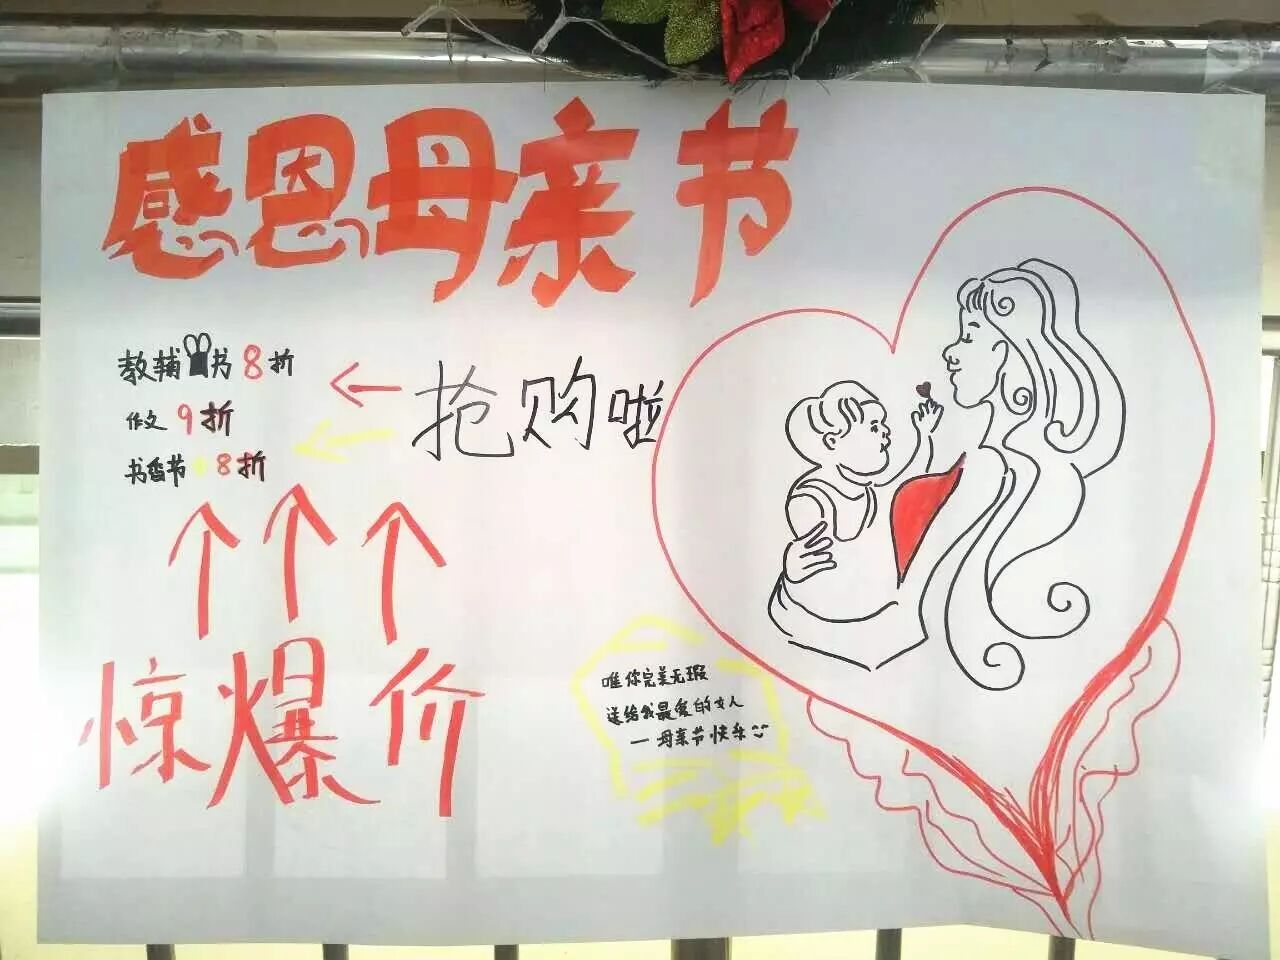 感恩母亲节
教辅书8折
作文9折
书香节8折
抢购啦
惊爆价
唯你完美无瑕
送给我最爱的女人
—母亲节快乐